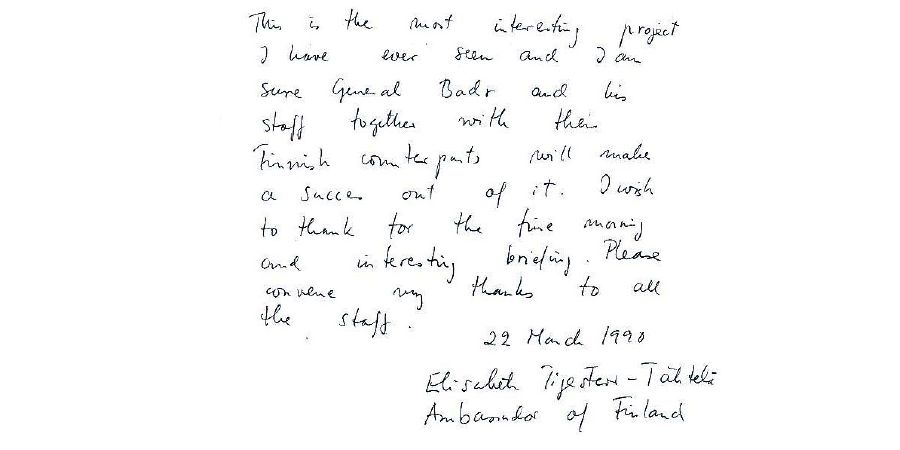 This is the most interesting project
I have ever seen and I am
sure General Badr and his
staff together with their
Finnish counterparts will make
a succes out of it. I wish
to thank for the fine morning
and interesting briefing. Please
convene my thanks to all
the staff.
22 March 1990
Elisabeth Tigerstedt-Tähtelä
Ambassador of Finland